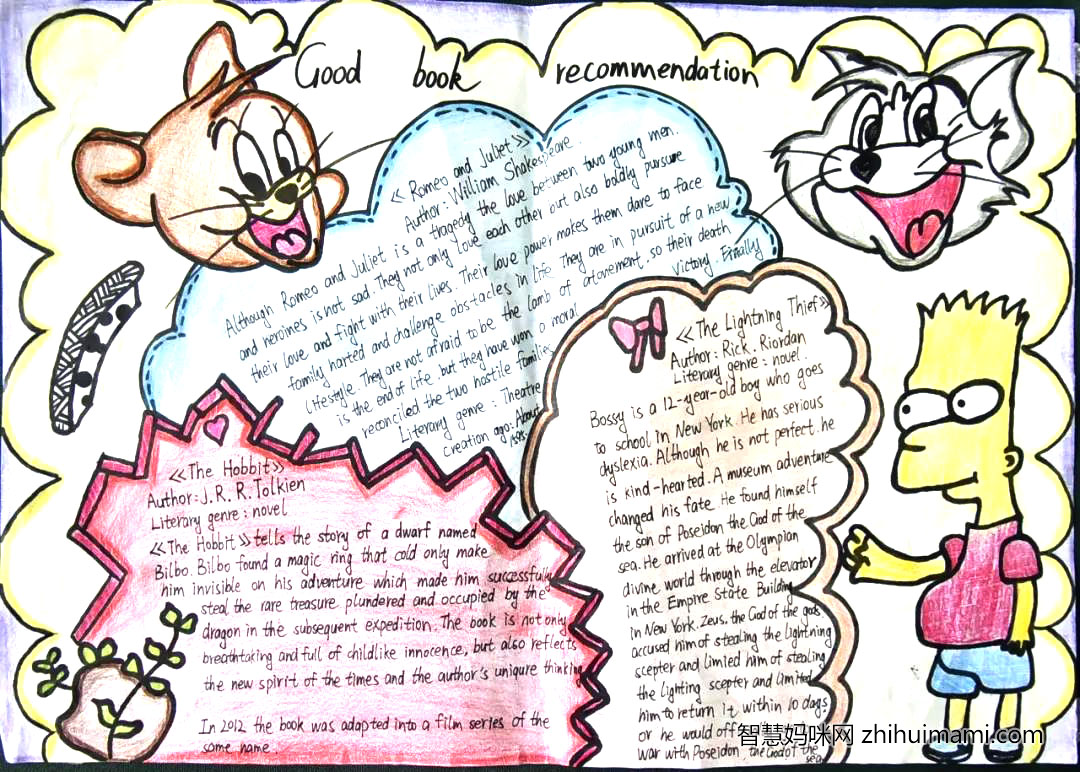 Good book recommendation
《Romeo and Juliet》
Author: William Shakespeare.
Although Romeo and Juliet is a tragedy the love between two young men.
and heroines is not sad. They not only love each other but also boldly pursue
their love and fight with their lives. Their love power makes them dare to face
family harted and challenge obstacles in life. They are in pursuit of a new
lifestyle. They are not afraid to be the lamb of atonement, so their death
is the end of life. but they have won a moral victory. Finally
reconciled the two hostile families
Literary genre: Theatre
creation ago: About
《The Lightning Thief》
Author: Rick. Riordan
Literary genre: novel.
Bossy is a 12-year-old boy who goes
to school in New York. He has serious
dyslexia. Although he is not perfect. he
is kind-hearted. A museum adventure
changed his fate. He found himself
the son of Poseidon the God of the
sea. He arrived at the Olympian
divine world through the elevator
in the Empire State Building
in New York. Zeus. the God of the gods
accused him of stealing the lightning
scepter and limied him of stealing
the lighting scepter and limited
him to return it within 10 days
or he would off
war with Poseidon, the God of the
sea
《The Hobbit》
Author: J. R. R. Tolkien
Literary genre: novel
《The Hobbit》tells the story of a dwarf named
Bilbo. Bilbo found a magic ring that cold only make
him invisible on his adventure which made him successfully
steal the rare treasure plundered and occupied by the
dragon in the subsequent expedition. The book is not only
breathtaking and full of childlike innocence, but also reflects
the new spirit of the times and the author's uniqure thinking
In 2012 the book was adapted into a film series of the
same name.
智慧妈咪网 zhihuimami.com